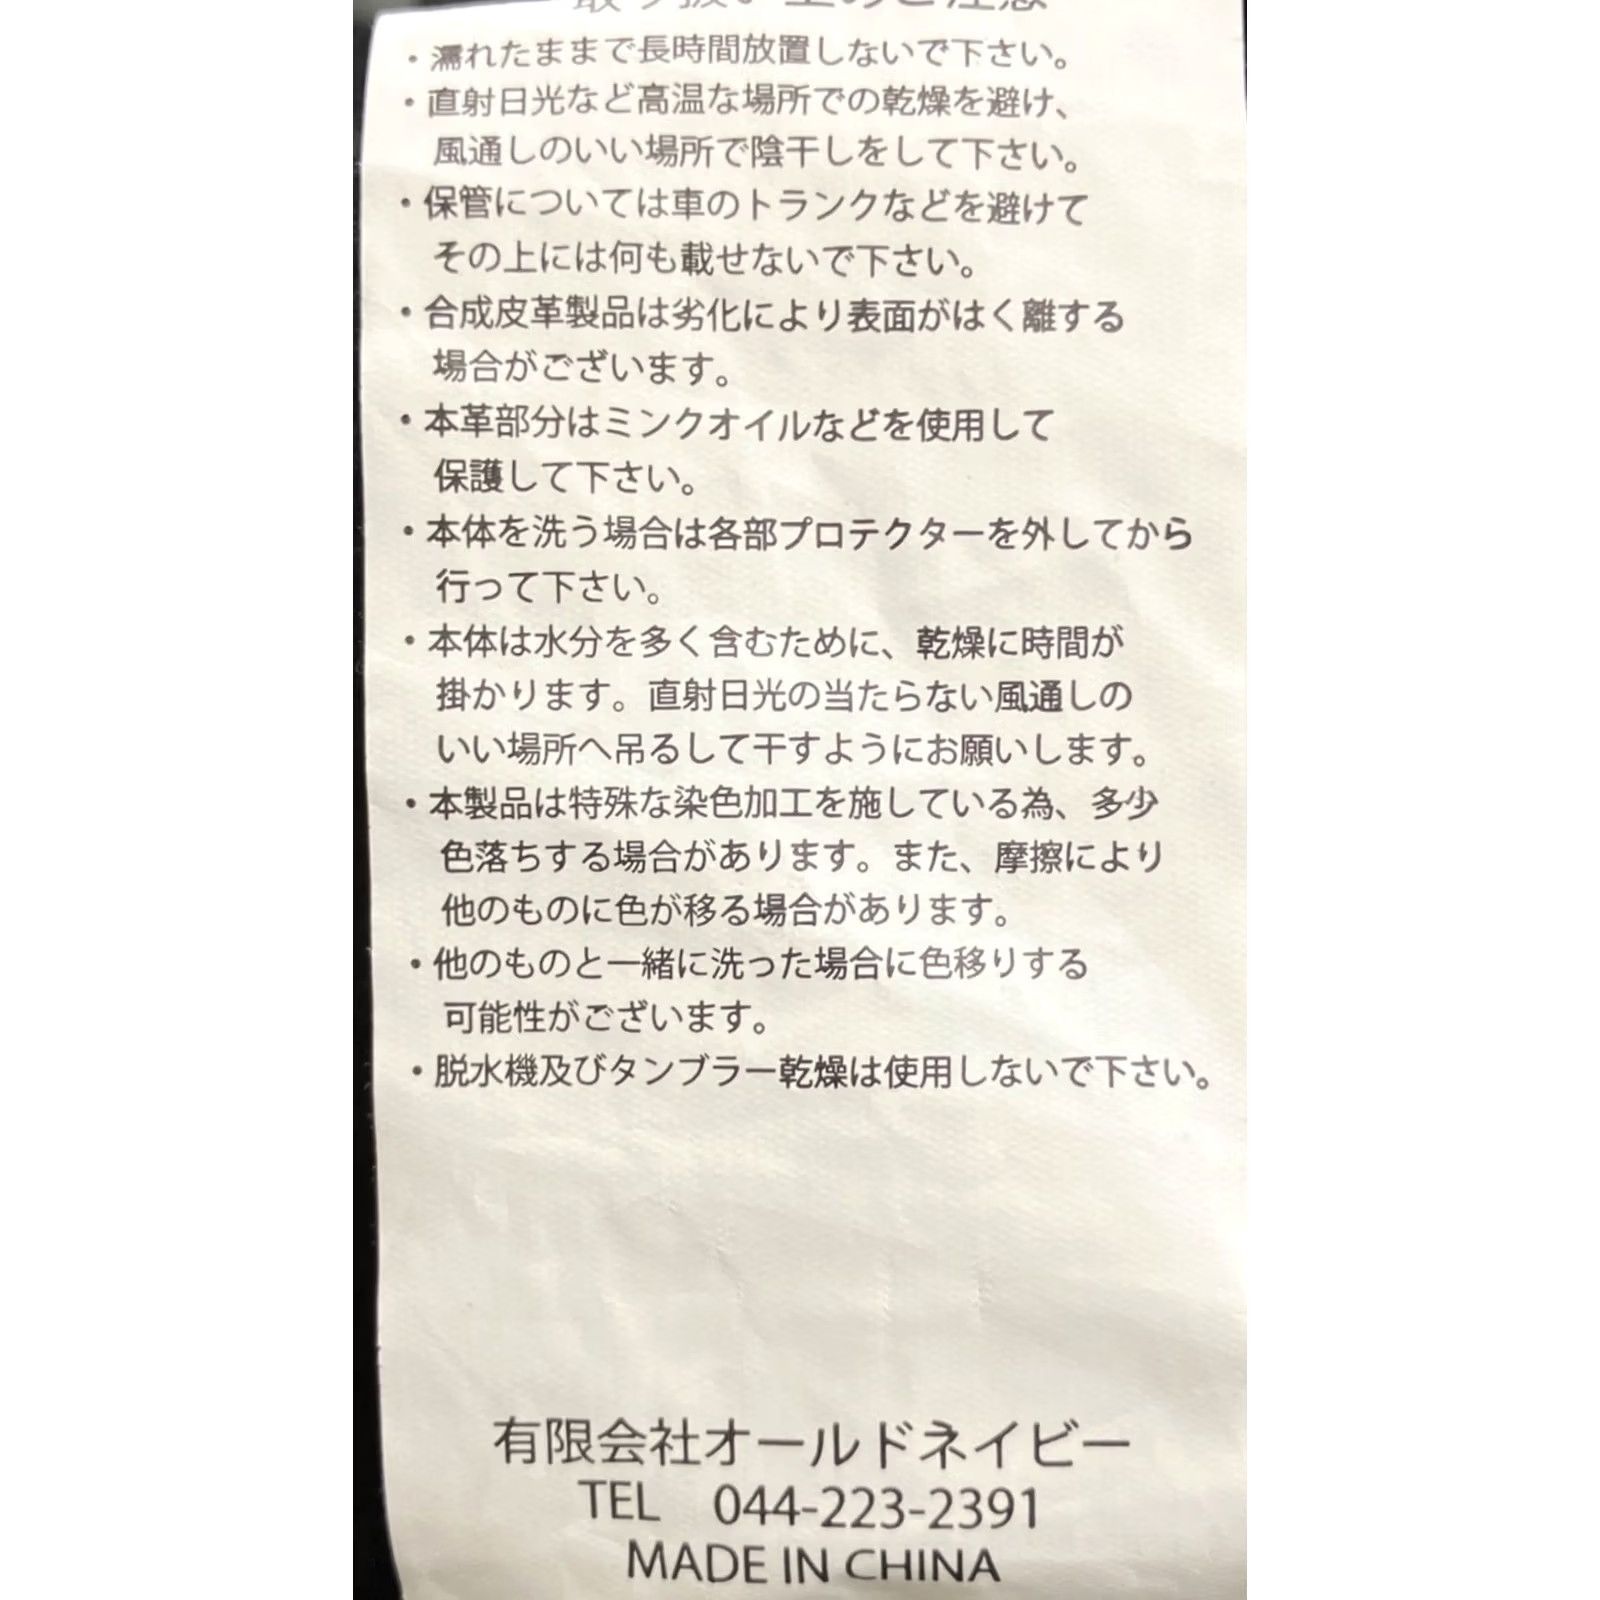 取り扱い上のご注意
・濡れたままで長時間放置しないで下さい。
・直射日光など高温な場所での乾燥を避け、
風通しのいい場所で陰干しをして下さい。
・保管については車のトランクなどを避けて
その上には何も載せないで下さい。
・合成皮革製品は劣化により表面がはく離する
場合がございます。
・本革部分はミンクオイルなどを使用して
保護して下さい。
・本体を洗う場合は各部プロテクターを外してから
行って下さい。
・本体は水分を多く含むために、乾燥に時間が
掛かります。直射日光の当たらない風通しの
いい場所へ吊るして干すようにお願いします。
・本製品は特殊な染色加工を施している為、多少
色落ちする場合があります。また、摩擦により
他のものに色が移る場合があります。
・他のものと一緒に洗った場合に色移りする
可能性がございます。
・脱水機及びタンブラー乾燥は使用しないで下さい。
有限会社オールドネイビー
TEL 044-223-2391
MADE IN CHINA